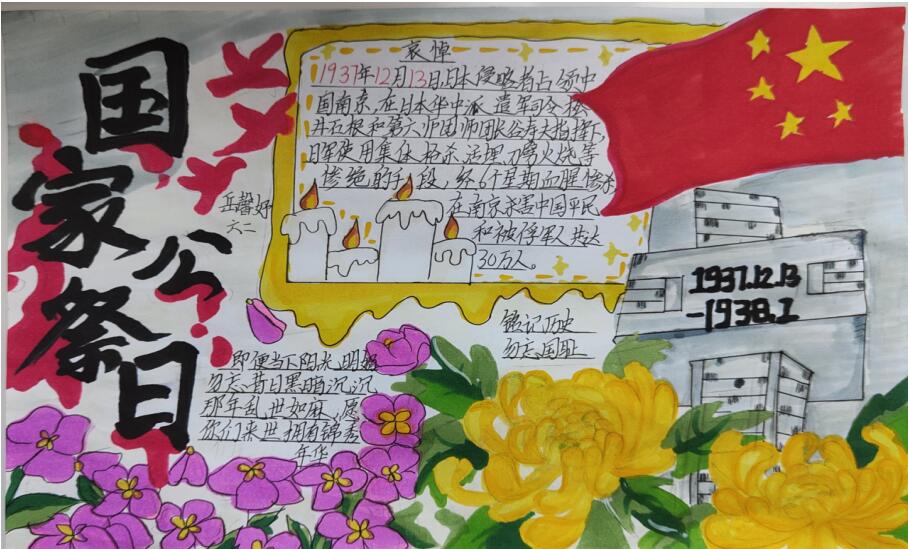 国家公祭日
哀悼
1937年12月13日,日本侵略者占领中
国南京,在日本华中派遣军司令松
井石根和第六师团师团长谷寿夫指挥下,
日军使用集体枪杀、活埋、刀劈、火烧等
惨绝的手段,经6个星期血腥惨杀
在南京杀害中国平民
和被俘军人共达
30万人。
岳馨妤
六二
1937.12.13
-1938.1
铭记历史
勿忘国耻
即便当下阳光明媚
勿忘昔日黑暗沉沉
那年乱世如麻,愿
你们来世拥有锦秀
年华